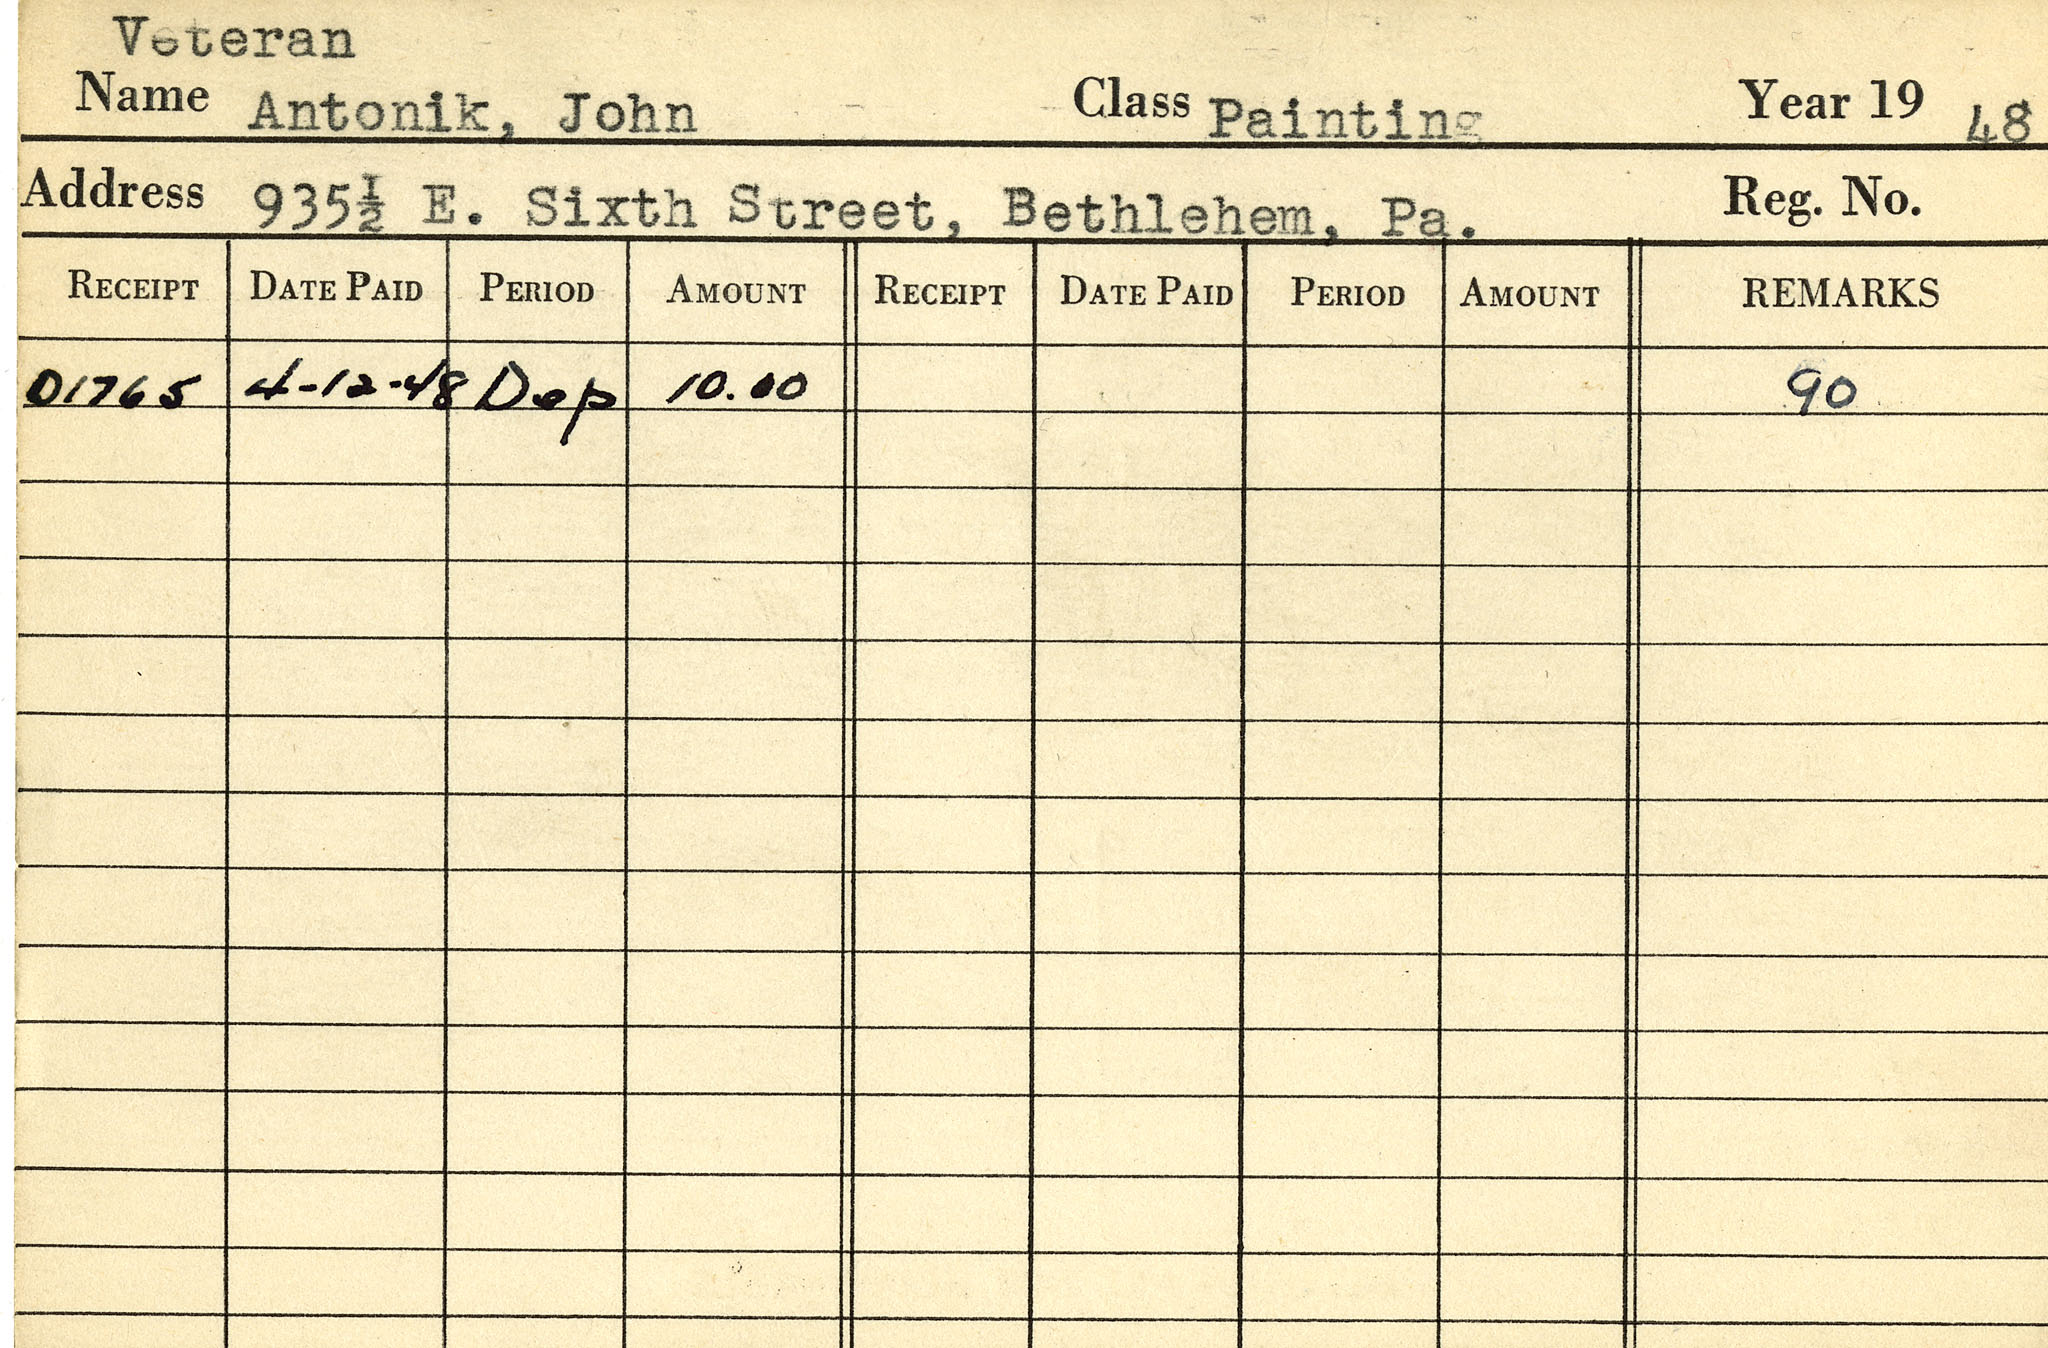 Veteran
Name Antonik, John Class Painting Year 19 48
Address 935½ E. Sixth Street, Bethlehem, Pa. Reg. No.
RECEIPT DATE PAID PERIOD AMOUNT RECEIPT DATE PAID PERIOD AMOUNT REMARKS
D1765 4-12-48 Dep 10.00 90